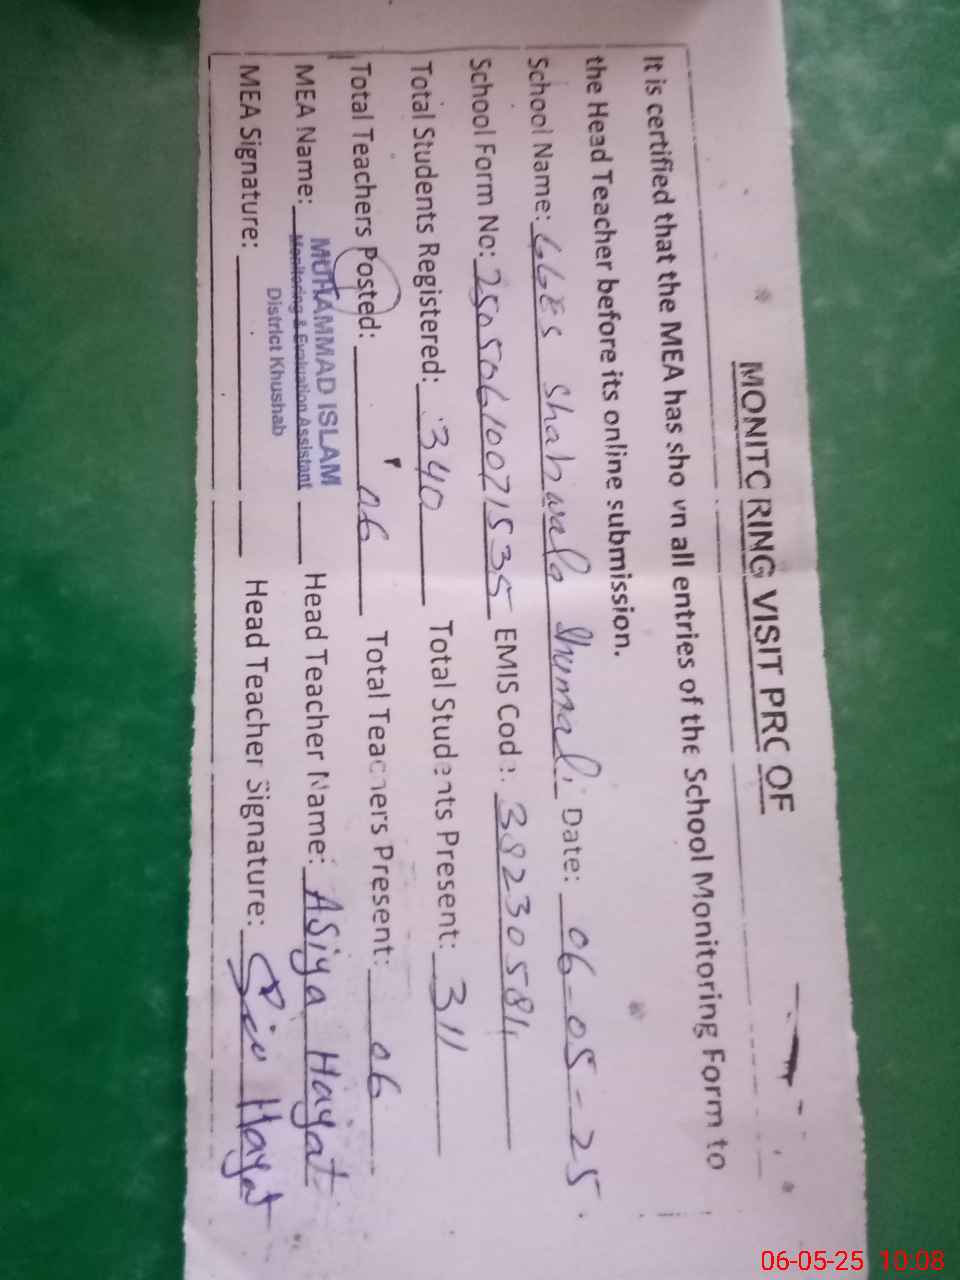 MONITORING VISIT PROOF
It is certified that the MEA has shown all entries of the School Monitoring Form to
the Head Teacher before its online submission.
School Name: GGES Shahwala Shumali Date: 06-05-25
School Form No: 25050610071535 EMIS Code: 38230584
Total Students Registered: 340 Total Students Present: 311
Total Teachers Posted: 06 Total Teachers Present: 06
MEA Name: MUHAMMAD ISLAM Head Teacher Name: Asiya Hayat
Monitoring & Evaluation Assistant
District Khushab
MEA Signature: Head Teacher Signature: Hayat
06-05-25 10:08